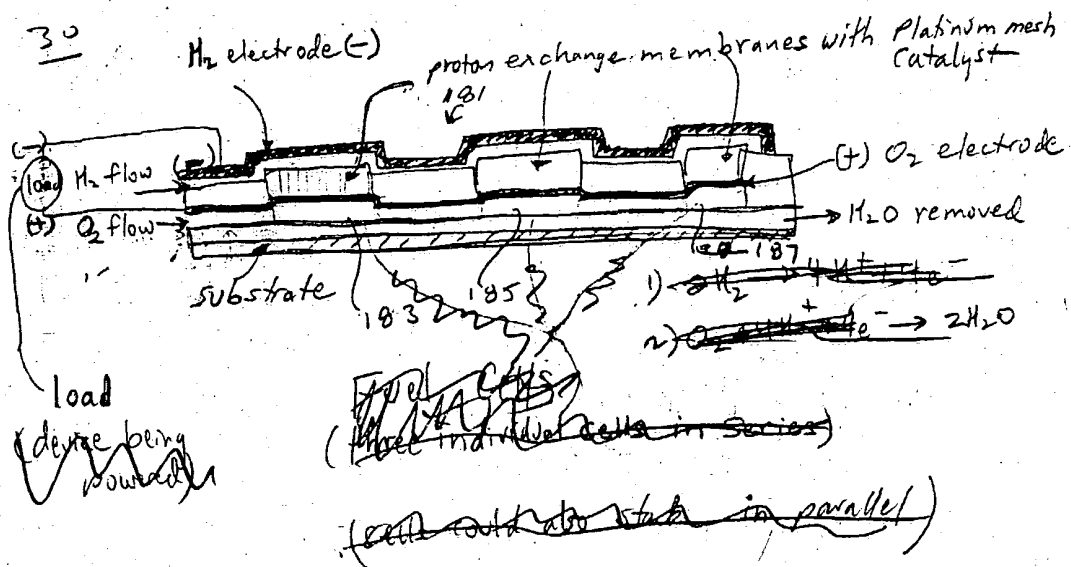 30
H2 electrode (-)
proton exchange membranes with Platinum mesh
Catalyst
181
(-)
(-)
(+) O2 electrode
load
H2 flow
(+)
O2 flow
H2O removed
substrate
183
185
187
1) 2H2 → 4H+ + 4e-
2) O2 + 4H+ + 4e- → 2H2O
load
(device being
powered)
Fuel Cells
(three individual cells in series)
(cells could also in parallel)